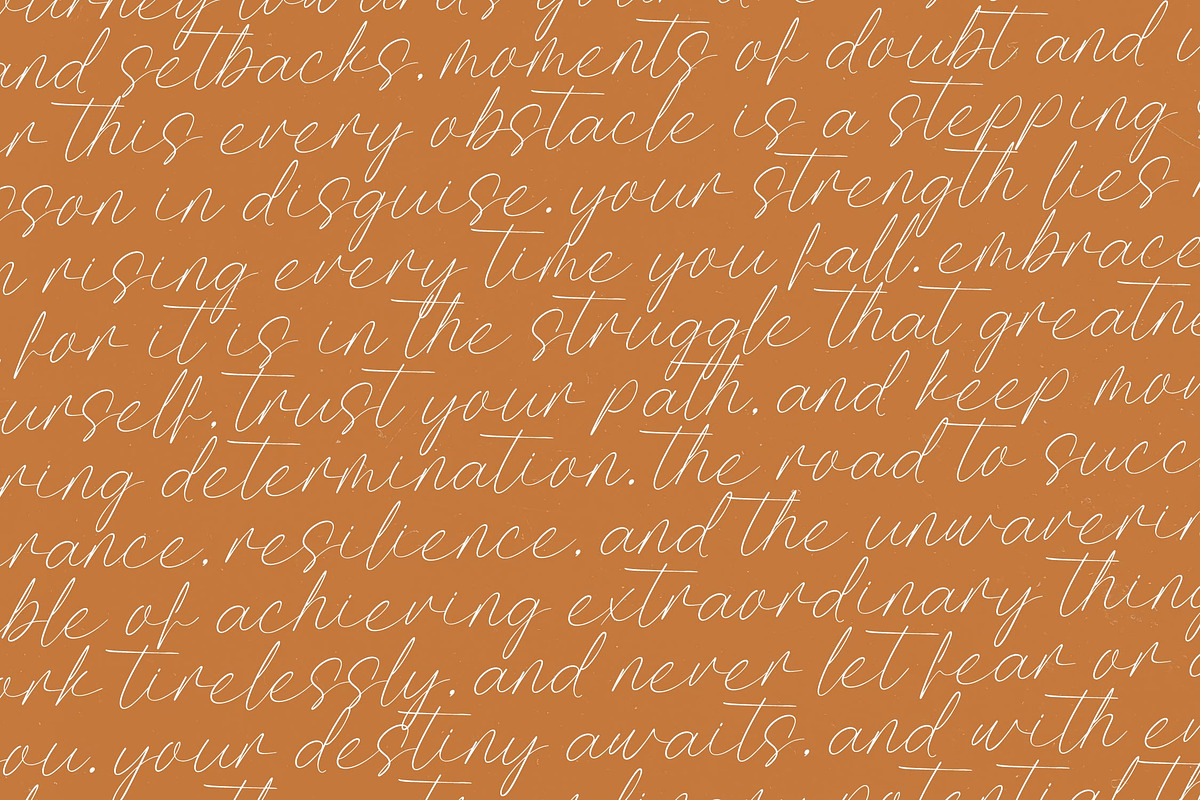 and setbacks. moments of doubt and
this every obstacle is a stepping
sson in disguise. your strength lies
n rising every time you fall. embrace
. for it is in the struggle that greatne
urself. trust your path. and keep mov
ring determination. the road to succ
rance. resilience. and the unwaverin
ble of achieving extraordinary thing
ork tirelessly. and never let fear or
ou. your destiny awaits. and with en